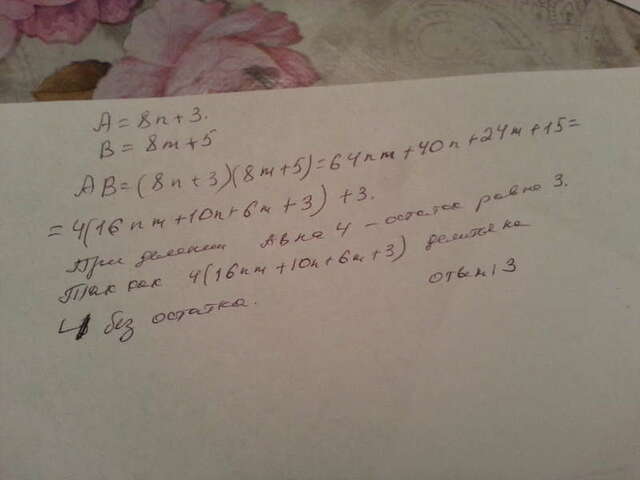 A = 8n + 3.
B = 8m + 5
AB = (8n + 3)(8m + 5) = 64nm + 40n + 24m + 15 =
= 4(16nm + 10n + 6m + 3) + 3.
При делении AB на 4 – остаток равно 3.
Так как 4(16nm + 10n + 6m + 3) делится на
4 без остатка.
ответ 3